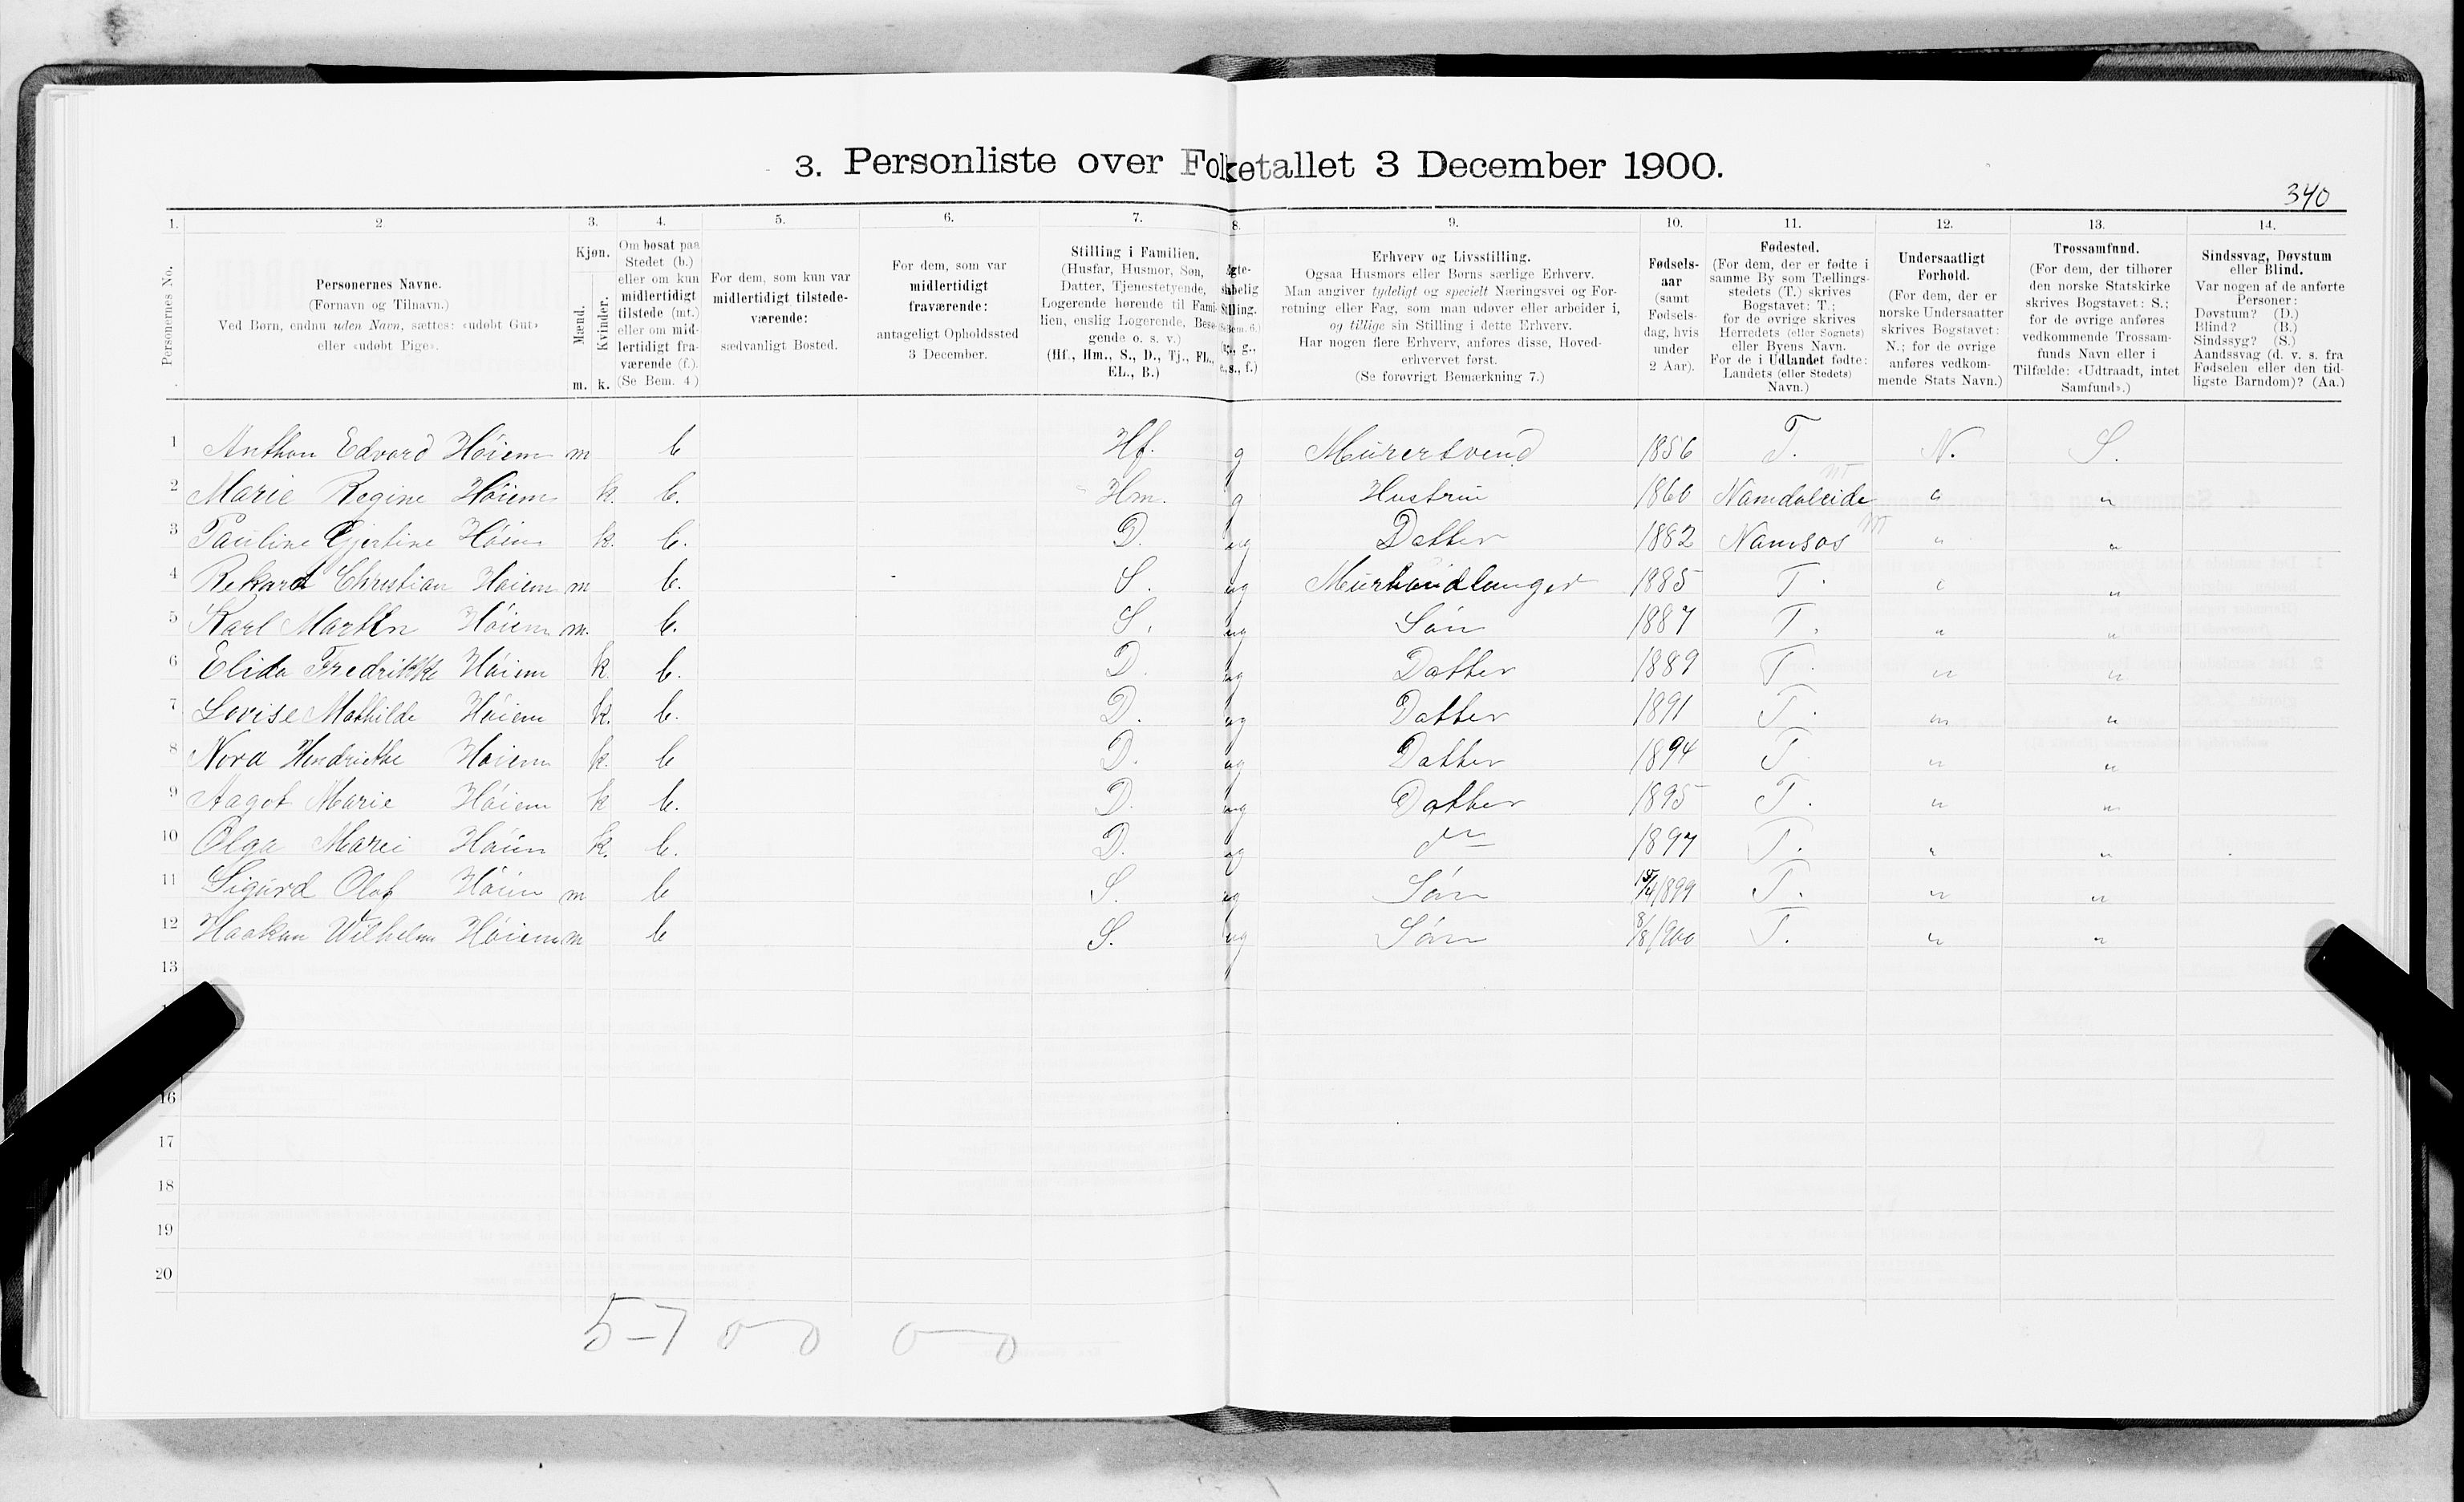 3. Personliste over Folketallet 3 December 1900.
340
1. 2 3. 4. 5. 6. 7. 8. 9. 10. 11. 12. 13. 14.
Personernes No.
Personernes Navne.
(Fornavn og Tilnavn.)
Ved Børn, endnu uden Navn, sættes: «udøbt Gut»
eller «udøbt Pige».
Kjøn.
Mænd.
Kvinder.
m. k.
Om bosat paa
Stedet (b.)
eller om kun
midlertidigt
tilstede (mt.)
eller om mid-
lertidigt fra-
værende (f.).
(Se Bem. 4.)
For dem, som kun var
midlertidigt tilstede-
værende:
sædvanligt Bosted.
For dem, som var
midlertidigt
fraværende:
antageligt Opholdssted
3 December.
Stilling i Familien.
(Husfar, Husmor, Søn,
Datter, Tjenestetyende,
Logerende hørende til Fami-
lien, enslig Logerende, Besø-
gende o. s. v.)
(Hf., Hm., S., D., Tj., FL.,
EL., B.)
Erhverv og Livsstilling.
Ogsaa Husmors eller Børns særlige Erhverv.
Man angiver tydeligt og specielt Næringsvei og For-
retning eller Fag, som man udøver eller arbeider i,
og tillige sin Stilling i dette Erhverv.
Har nogen flere Erhverv, anføres disse, Hoved-
erhvervet først.
(Se forøvrigt Bemærkning 7.)
Fødsels-
aar
(samt
Fødsels-
dag, hvis
under
2 Aar).
Fødested.
(For dem, der er fødte i
samme By som Tællings-
stedets (T.) skrives
Bogstavet: T.;
for de øvrige skrives
Herredets (eller Sognets)
eller Byens Navn.
For de i Udlandet fødte:
Landets (eller Stedets)
Navn.)
Undersaatligt
Forhold.
(For dem, der er
norske Undersaatter
skrives Bogstavet:
N.; for de øvrige
anføres vedkom-
mende Stats Navn.)
Trossamfund.
(For dem, der tilhører
den norske Statskirke
skrives Bogstavet: S.;
for de øvrige anføres
vedkommende Trossam-
funds Navn eller i
Tilfælde: «Udtraadt, intet
Samfund».)
Sindssvag, Døvstum
eller Blind.
Var nogen af de anførte
Personer:
Døvstum? (D.)
Blind? (B.)
Sindssyg? (S.)
Aandssvag (d. v. s. fra
Fødselen eller den tid-
ligste Barndom)? (Aa.)
1 Anthon Edvard Höiem m b Hf. g Murersvend 1856 T. N. S.
2 Marie Regine Höiem k. b. Hm. g Hustru 1860 Namdaleide " "
3 Pauline Gjertine Höiem k. b. D. ug Datter 1882 Namsos " "
4 Rikard Christian Höiem m b. S. ug Murhandlanger 1885 T. " "
5 Karl Martin Höiem m. b. S. ug Sön 1887 T. " "
6 Elida Fredrikke Höiem k b. D. ug Datter 1889 T. " "
7 Lovise Mathilde Höiem k. b. D. ug Datter 1891 T. " "
8 Nora Hendrikke Höiem k. b D. ug Datter 1894 T. " "
9 Aagot Marie Höiem k b. D. ug Datter 1895 T. " "
10 Olga Marei Höiem k. b. D. ug 1897 T. " "
11 Sigurd Olaf Höiem m b S. ug Sön 15/4 1899 T. " "
12 Haakon Wilhelm Höiem m b S. ug Sön 8/8 1900 T. " "
13
16
17
18
19
20
5-7 0-0 0-0